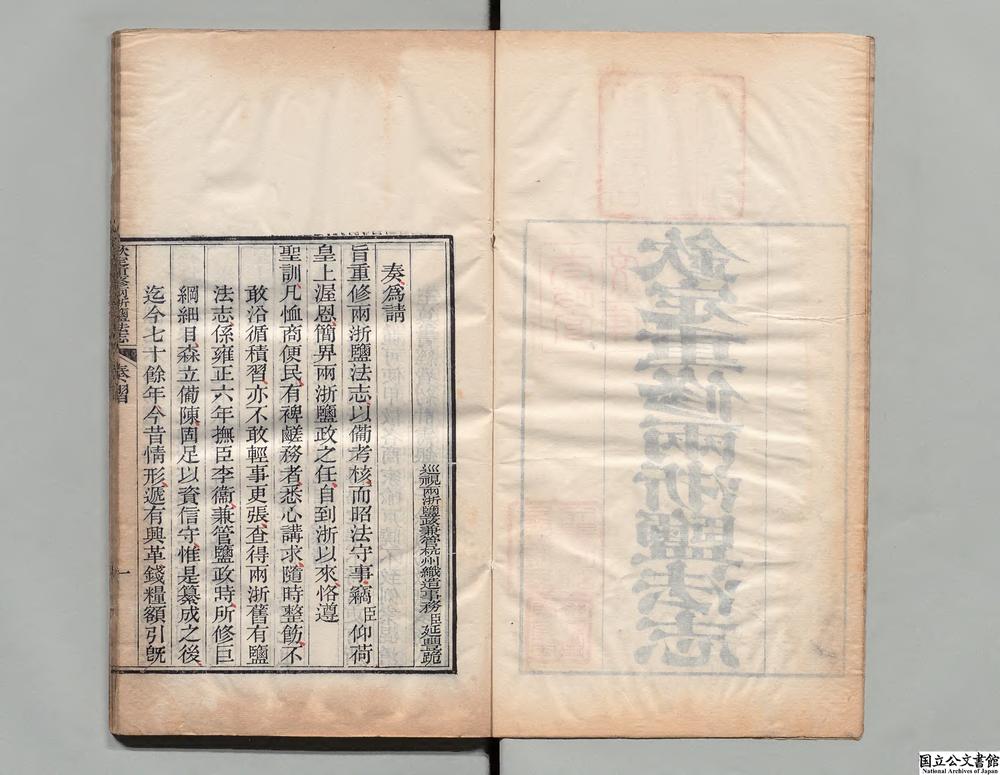 欽定重修兩浙鹽法志
巡視兩浙鹽政兼管杭州織造事務臣延豐跪
奏為請
旨重修兩浙鹽法志以備考核而昭法守事竊臣仰荷
皇上渥恩簡畀兩浙鹽政之任自到浙以來恪遵
聖訓凡恤商便民有裨鹺務者悉心講求隨時整飭不
敢沿循積習亦不敢輕事更張查得兩浙舊有鹽
法志係雍正六年撫臣李衞兼管鹽政時所修巨
綱細目森立備陳固足以資信守惟是纂成之後
迄今七十餘年今昔情形遞有興革錢糧額引旣
欽定重修兩浙鹽法志 卷首 一
国立公文書館
National Archives of Japan